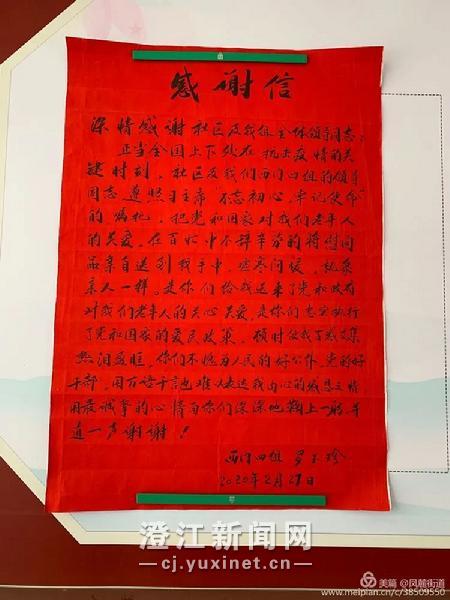 感谢信
深情感谢社区及我组全体领导同志：
正当全国上下处在抗击疫情的关
键时刻，社区及我们西门四组的领导
同志遵照习主席“不忘初心，牢记使命”
的嘱托，把党和国家对我们老年人
的关爱，在百忙中不辞辛劳的将慰问
品亲自送到我手中，嘘寒问暖，就象
亲人一样。是你们给我送来了党和政府
对我们老年人的关心关爱，是你们忠实执行
了党和国家的爱民政策，顿时使我百感交集
热泪盈眶，你们不愧为人民的好公仆，党的好
干部，用千言万语也难以表达我内心的感恩之情
用最诚挚的心情向你们深深地鞠上一躬，并
道一声谢谢！
西门四组 罗玉珍
2020年2月27日
澄江新闻网
cj.yuxinet.cn
美篇 @凤麓街道
www.meipian.cn/c/38509550